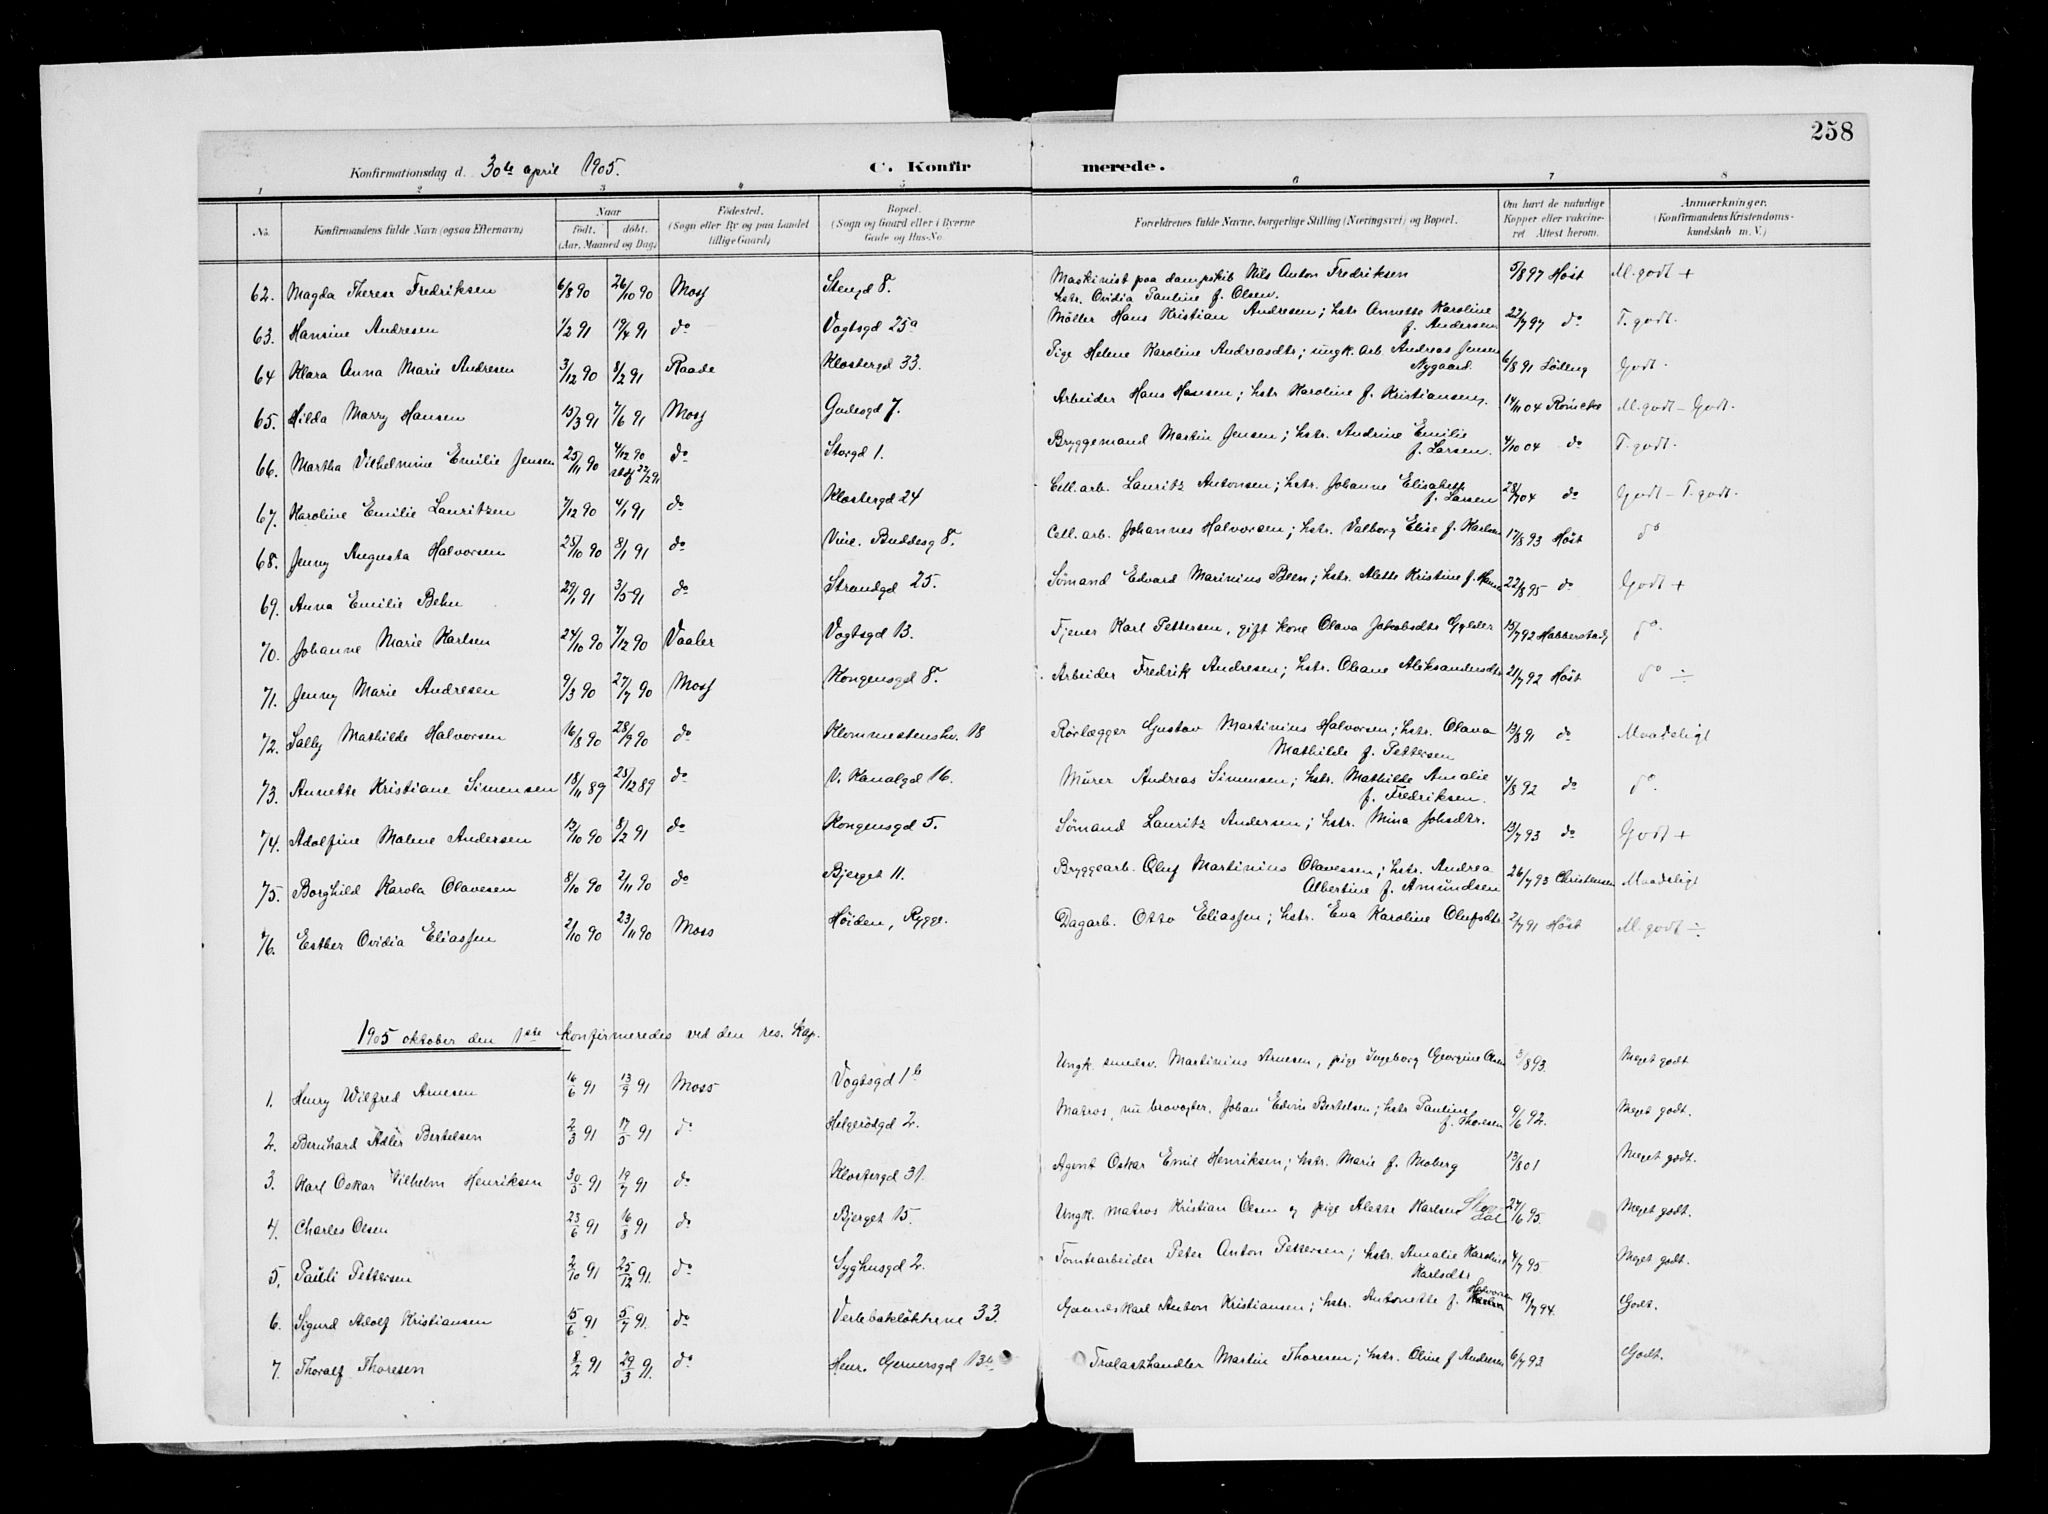 258
Konfirmationsdag d. 30te april 1905. C. Konfirmerede.
1 2 3 4 5 6 7 8
No. Konfirmandens fulde Navn (ogsaa Efternavn) Naar født. døbt. (Aar, Maaned og Dag) Fødested. (Sogn eller By og paa Landet tillige Gaard) Bopæl. (Sogn og Gaard eller i Byerne Gade og Hus-No. Forældrenes fulde Navne, borgerlige Stilling (Næringsvei) og Bopæl. Om havt de naturlige Kopper eller vaccineret Attest herom. Anmærkninger. (Konfirmandens Kristendomskundskab m. V.)
62. Magda Therese Fredriksen 6/8 90 26/10 90 Moss Stengd 8. Maskinist paa dampskib Nils Anton Fredriksen 5/8 97 Höst M. godt +
hstr. Ovidia Pauline f. Olsen.
63. Hansine Andresen 1/2 91 19/4 91 do Vogtsgd 25a Möller Hans Kristian Andresen; hstr Annette Karoline 22/7 97 do T. godt.
f. Andersen
64 Klara Anna Marie Andresen 3/12 90 8/2 91 Raade Klostergd 33. Pige Helene Karoline Andreasdtr; ungk. arb. Andreas Jensen 6/8 91 Godt.
Nygaard.
65. Hilda Marry Hansen 15/3 91 7/6 91 Moss Gudesgd 7. Arbeider Hans Hansen; hstr Karoline f. Kristiansen 14/11 04 M. godt - Godt.
66. Martha Vilhelmine Emilie Jensen 25/11 90 4/12 90 do Storgd 1. Bryggemand Martin Jensen; hstr. Andrine Emilie 4/10 04 do T. godt.
stdf 22/2 91 f. Larsen.
67. Karoline Emilie Lauritzen 7/12 90 4/1 91 do Klostergd 24 Cell. arb. Lauritz Antonsen; hstr. Johanne Elisabeth do Godt - T. godt.
f. Larsen
68. Jenny Augusta Halvorsen 28/10 90 8/1 91 do Vinc. Buddesg 8. Cell. arb. Johannes Halvorsen; hstr. Valborg Elise f. Karlsen 17/8 93 Höst do
69. Anna Emilie Behn 29/1 91 3/5 91 do Strandgd 25. Sömand Edvard Marinius Been; hstr. Alette Kristine f. Hansen 22/8 95 do Godt +
70. Johanne Marie Karlsen 24/10 90 7/12 90 Vaaler Vogtsgd 13. Tjener Karl Pettersen, gift kone Olava Jakobsdtr Gylder 15/7 92 Habberstad do.
71. Jenny Marie Andresen 9/3 90 27/7 90 Moss Kongensgd 8. Arbeider Fredrik Andresen; hstr. Oleane Aleksandersdtr 21/7 92 Höst do ÷
72. Sally Mathilde Halvorsen 16/8 90 28/9 90 do Klommestenshv. 18 Rörlægger Gustav Martinius Halvorsen; hstr. Olava 13/8 91 do Maadeligt
Mathilde f. Pettersen
73. Annette Kristiane Simensen 18/11 89 25/12 89 do V. Kanalgd 16. Mürer Andreas Simensen; hstr. Mathilde Amalie 4/8 92 do do.
f. Fredriksen.
74. Adolfine Malene Andersen 12/10 90 8/2 91 do Kongensgd 5. Sömand Lauritz Andersen; hstr. Mina Johsdtr. 13/7 93 do Godt +
75. Borghild Karola Olavesen 8/10 90 2/11 90 do Bjerget 11. Bryggearb. Oluf Martinius Olavessen; hstr. Andrea 26/7 93 Christensen Maadeligt
Albertine f. Amundsen
76. Esther Ovidia Eliassen 2/10 90 23/11 90 Moss Höiden, Rygge. Dagarb. Otto Eliassen; hstr. Eva Karoline Olufsdtr 2/7 91 Höst M. godt ÷
1905 oktober den 1ste konfirmeredes ved den res. kap.
1. Henry Wilfred Arnesen 16/6 91 13/9 91 Moss Vogtsgd 1b Ungk. smedsv. Martinius Arnesen, pige Ingeborg Georgine Olsen 3/8 93. Meget godt
2. Bernhard Adler Bertelsen 2/3 91 17/5 91 do Helgerödgd 2. Matros, nu brovogter, Johan Edvin Bertelsen; hstr Pauline 9/6 92. Meget godt.
f. Thoresen
3. Karl Oskar Vilhelm Henriksen 30/5 91 19/7 91 do Klostergd 31. Agent Oskar Emil Henriksen; hstr. Marie f. Moberg 13/8 01 Meget godt.
4. Charles Olsen 23/6 91 16/8 91 do Bjerget 15. Ungk. matros Kristian Olsen og pige Alette Karlsen 27/6 95. Meget godt.
5. Pauli Pettersen 2/10 91 25/12 91. do Syghusgd 2. Tomtearbeider Peter Anton Pettersen; hstr. Amalie Karoline 4/7 95 Meget godt.
Karlsdtr
6. Sigurd Adolf Kristiansen 15/6 91 5/7 91. do Verlebakløkkene 33. Gaardskarl Anton Kristiansen; hstr. Antonette f. Halvorsen 19/7 94. Godt.
7. Thoralf Thoresen 8/2 91 29/3 91. do Henr. Gernersgd 13b Trælasthandler Martin Thoresen; hstr. Oline f Andresen 6/7 93 Godt.